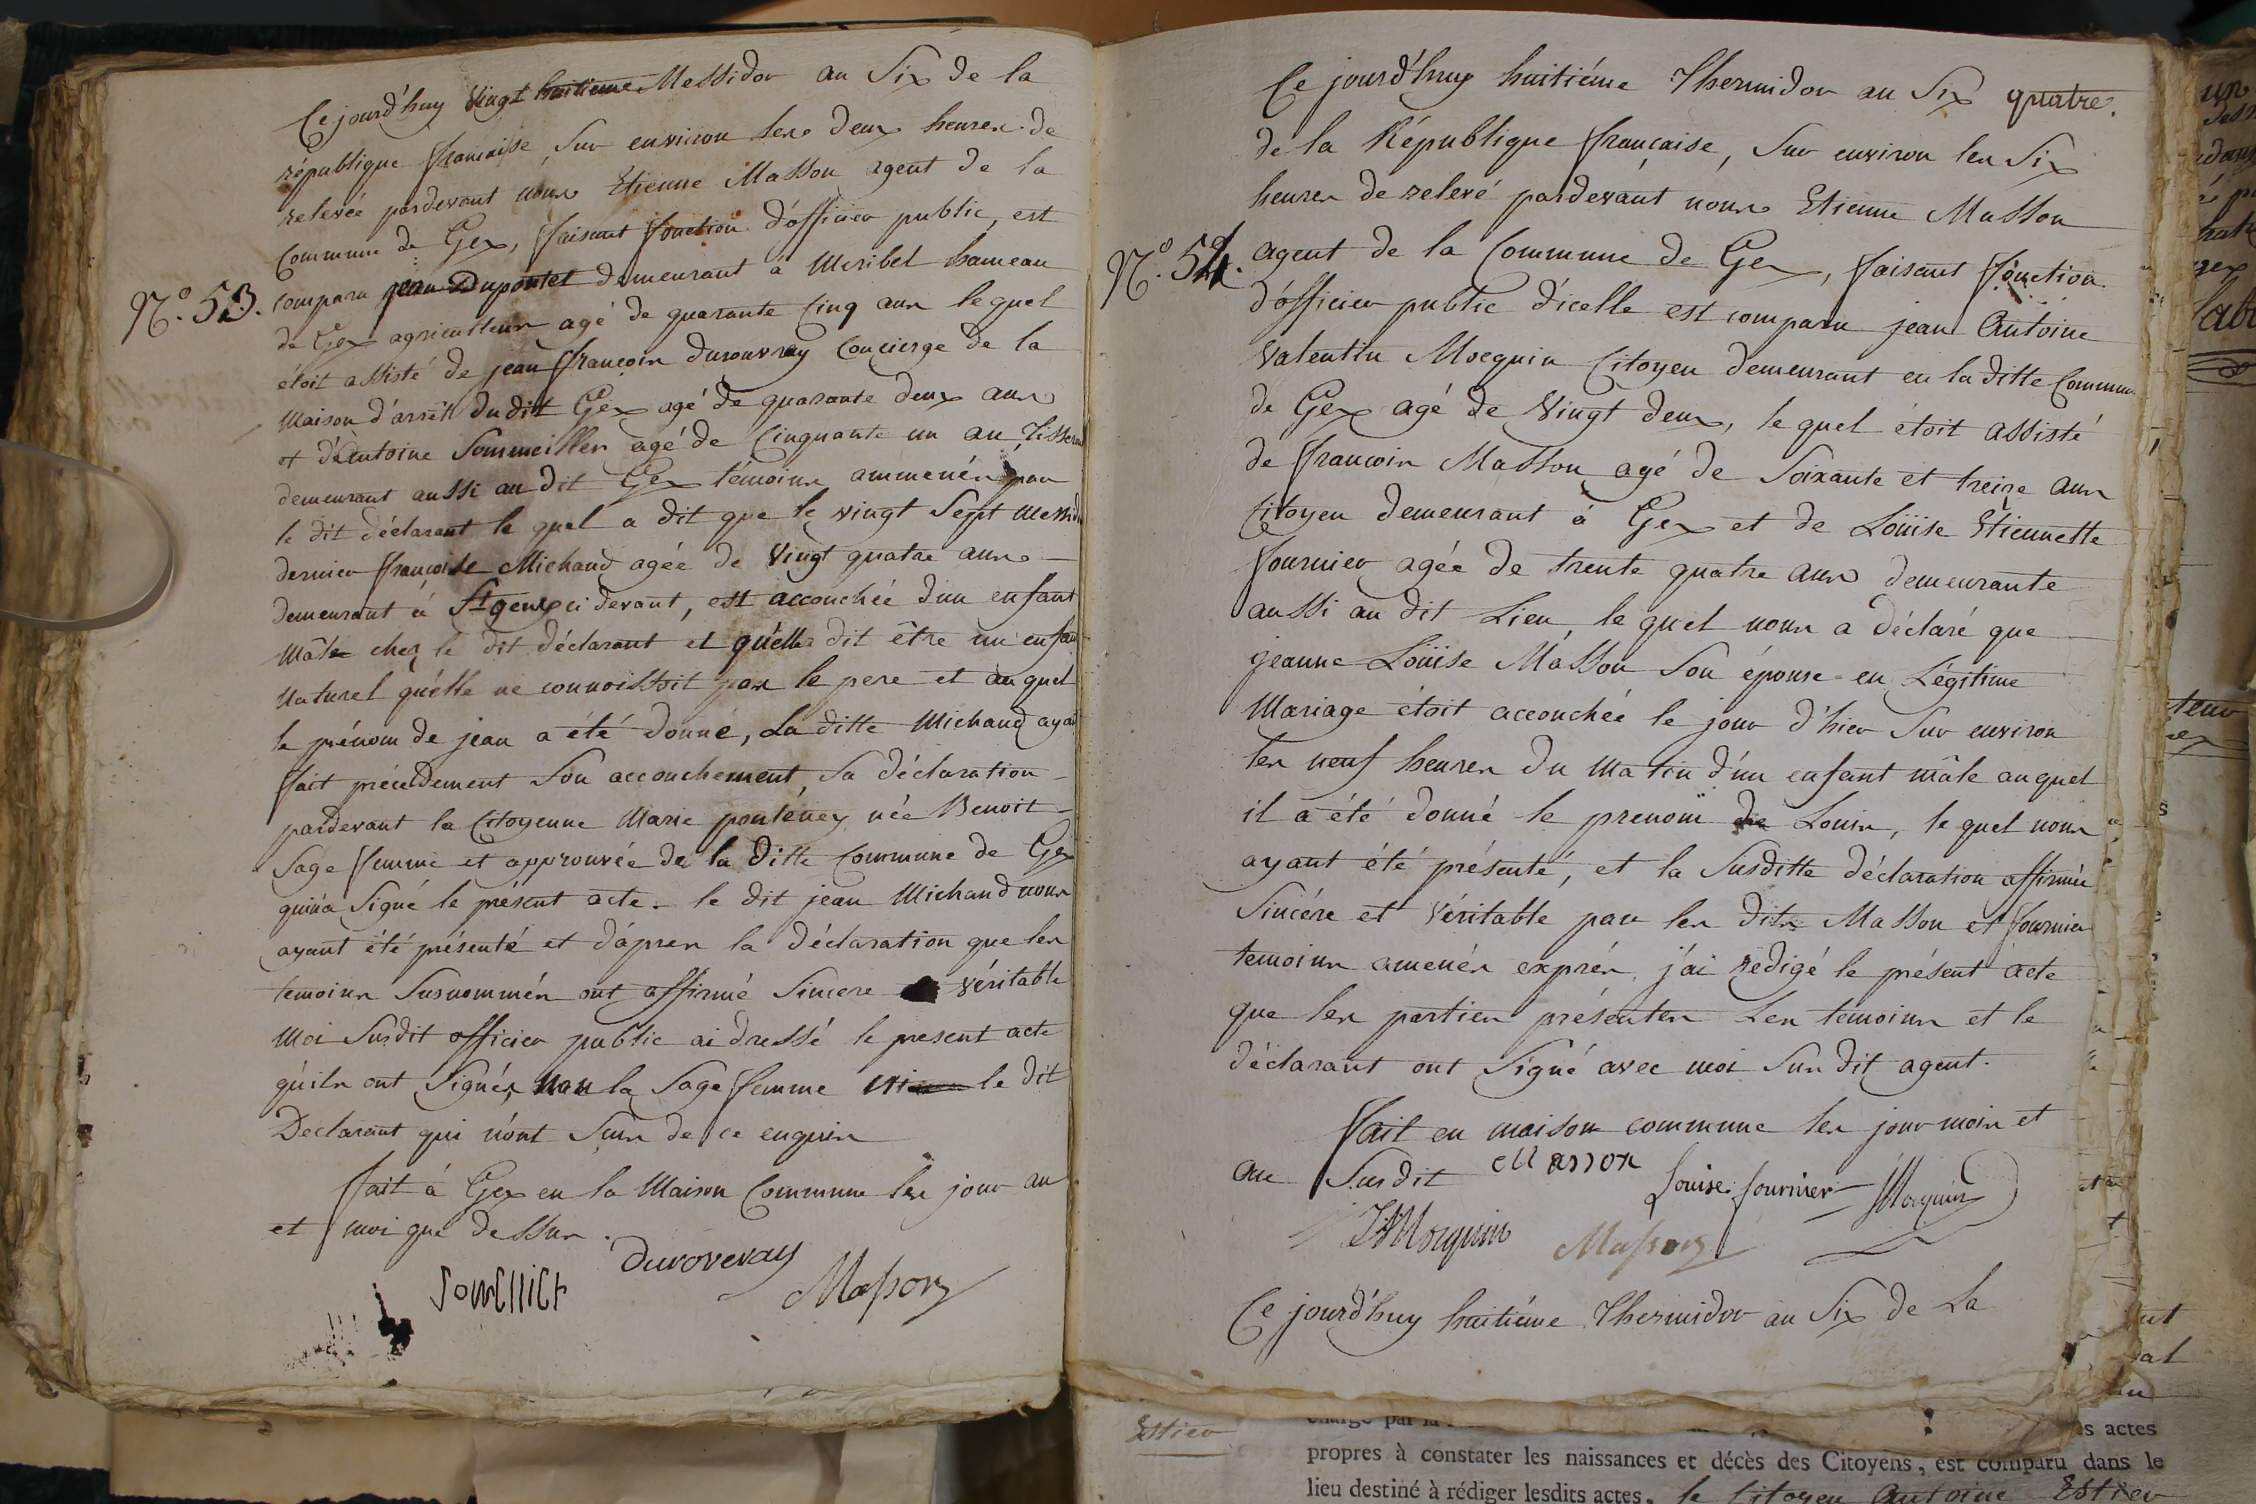 Ce jourd'huy vingt huitieme Messidor an Six de la
république française, Sur environ les deux heures de
relevée pardevant nous Etienne Masson agent de la
Commune de Gex, faisant fonction d'officier public, est
N.° 53. comparu jean Dupontet demeurant à Meribel hameau
de Gex agriculteur agé de quarante Cinq ans lequel
étoit assisté de jean françois durouvray Concierge de la
Maison d'arrêt du dit Gex agé de quarante deux ans
et d'antoine Sommeiller agé de Cinquante un an
demeurant aussi au dit Gex témoins ammenés par
le dit déclarant le quel a dit que le vingt Sept
dernier françoise Michaud agée de Vingt quatre ans
demeurant à ci devant, est accouchée d'un enfant
Mâle chez le dit déclarant et qu'elle dit être un
Naturel qu'elle ne connoissoit pas le pere et auquel
le prénom de jean a été donné, La ditte Michaud
fait précédement Son accouchement, Sa déclaration
pardevant la Citoyenne Marie ponténey née Benoit
Sage femme et approuvée de la ditte Commune de Gex
qui n'a Signé le présent acte. le dit jean Michaud nous
ayant été présenté et d'après la déclaration que les
temoins Susnommés ont affirmé Sincere véritable
Moi Susdit officier public ai dressé le present acte
qu'ils ont Signés, non la Sage femme le dit
Declarant qui n'ont Sçus de ce enquis
fait à Gex en la Maison Commune les jour an
et moi que dessus.
Durovevay
Somellier
Masson
Ce jourd'huy huitiéme Thermidor an Six quatre.
de la République française, Sur environ les Six
heures de relevé pardevant nous Etienne Masson
N.° 54. agent de la Commune de Gex, faisant fonction
d'officier public d'icelle est comparu jean Antoine
Valentin Mocquin Citoyen demeurant en la ditte Commune
de Gex agé de Vingt deux, le quel étoit assisté
de françois Masson agé de Soixante et treize ans
Citoyen demeurant à Gex et de Loüise Etiennette
fournier agée de trente quatre ans demeurante
aussi au dit Lieu, le quel nous a déclaré que
jeanne Loüise Masson Son épouse en Légitime
Mariage étoit accouchée le jour d'hier Sur environ
les neuf heures du Matin d'un enfant mâle auquel
il a été donné le prenom de Louis, le quel nous
ayant été présenté, et la Susditte déclaration affirmée
Sincére et Véritable par les dits Masson et fournier
temoins amenés exprés, j'ai redigé le présent acte
que les parties présentes Les temoins et le
déclarant ont Signé avec moi Sus dit agent.
fait en maison commune les jour mois et
an Susdit Masson Louise fournier Mocquin
JAMocquin Masson
Ce jourd'huy huitiéme Thermidor an Six de La
Estier
propres à constater les naissances et décès des Citoyens, est comparu dans le
lieu destiné à rédiger lesdits actes, le Citoyen Antoine Estier